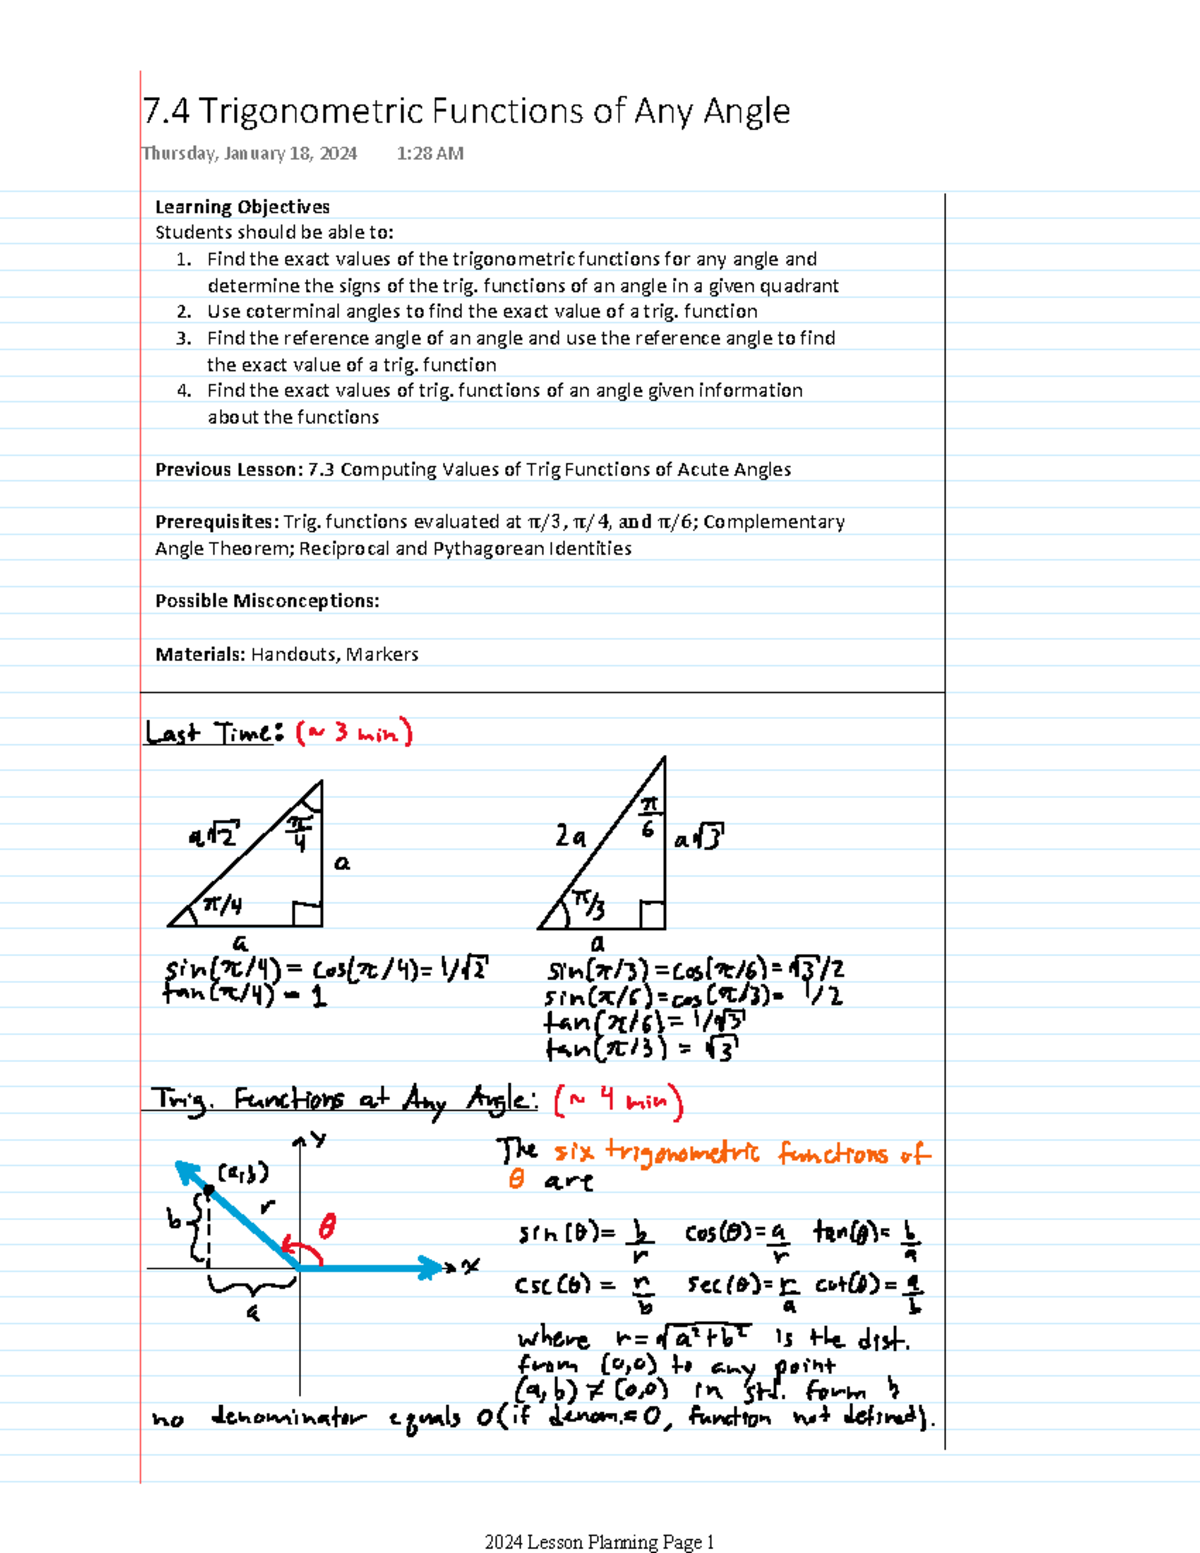 7.4 Trigonometric Functions of Any Angle
Thursday, January 18, 2024 1:28 AM
Learning Objectives
Students should be able to:
1. Find the exact values of the trigonometric functions for any angle and
determine the signs of the trig. functions of an angle in a given quadrant
2. Use coterminal angles to find the exact value of a trig. function
3. Find the reference angle of an angle and use the reference angle to find
the exact value of a trig. function
4. Find the exact values of trig. functions of an angle given information
about the functions
Previous Lesson: 7.3 Computing Values of Trig Functions of Acute Angles
Prerequisites: Trig. functions evaluated at π/3, π/4, and π/6; Complementary
Angle Theorem; Reciprocal and Pythagorean Identities
Possible Misconceptions:
Materials: Handouts, Markers
Last Time: (~ 3 min)
a√2 π/4 a
π/4
a
2a π/6 a√3
π/3
a
sin(π/4) = cos(π/4) = 1/√2
tan(π/4) = 1
sin(π/3) = cos(π/6) = √3/2
sin(π/6) = cos(π/3) = 1/2
tan(π/6) = 1/√3
tan(π/3) = √3
Trig. Functions at Any Angle: (~ 4 min)
y
(a,b)
r
b
θ
x
a
The six trigonometric functions of
θ are
sin(θ) = b/r cos(θ) = a/r tan(θ) = b/a
csc(θ) = r/b sec(θ) = r/a cot(θ) = a/b
where r = √a²+b² is the dist.
from (0,0) to any point
(a,b) ≠ (0,0) in std. form &
no denominator equals 0 (if denom. = 0, function not defined).
2024 Lesson Planning Page 1